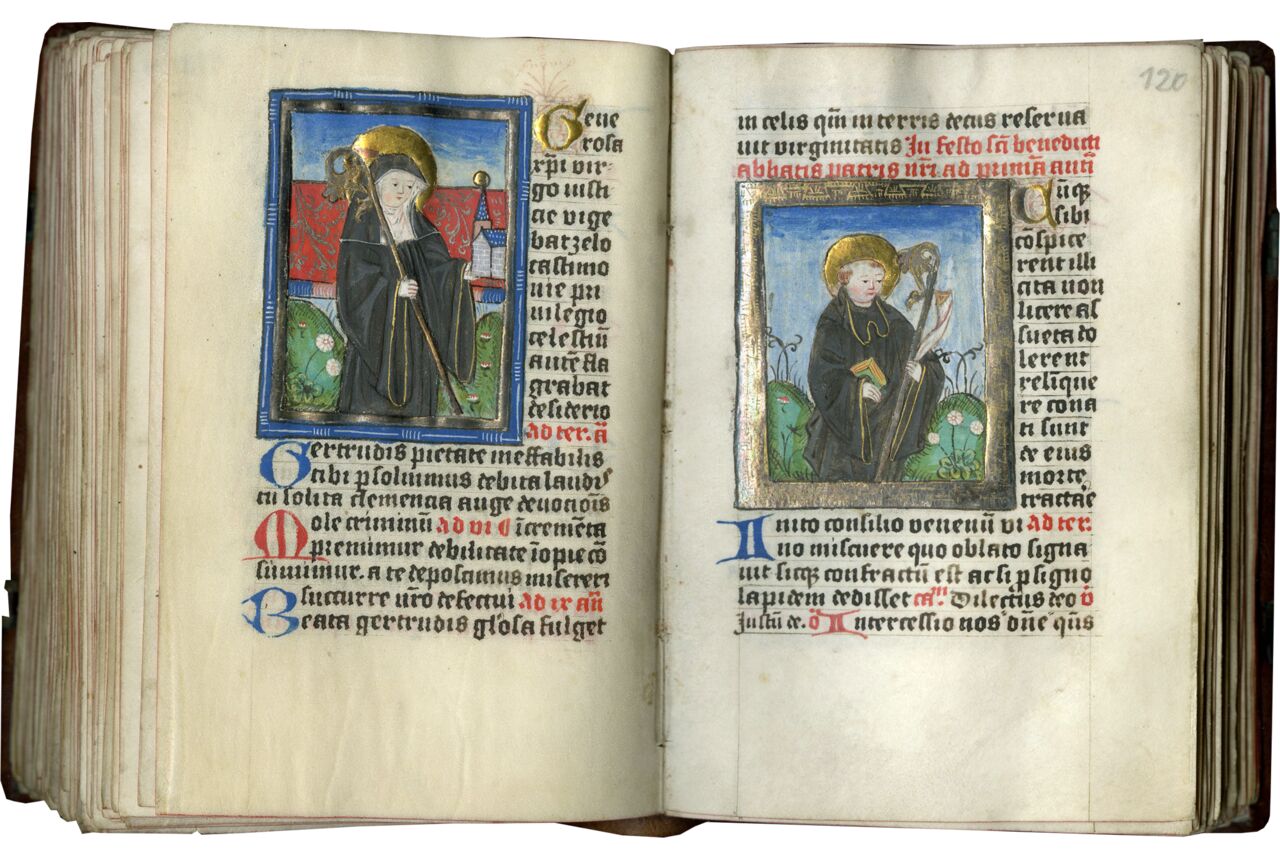 Gene
rosa
xp̄i vir-
go iusti
cie vige
bat zelo
castimo
nie pri
uilegio
celestiū
autē fla
grabat
desiderio
ad ter. ā
Gertrudis pietate ineffabilis
tibi psoluimus debita laudis
tu solita clemencia auge deuocōis
Mole criminū ad vi c̄ īcremēta
premimur debilitate īopie cō
summimur. a te deposcamus misereri
succurre nr̄o defectui ad ix an̄
Beata gertrudis gl'osa fulget
120
in celis qm̄ in terris decus reserua
uit virginitatis In festo sc̄i benedicti
abbatis patris nr̄i ad primā antī
Cūq
sibi
cōspice
rent illi
cita non
licere as
sueta do
lerent
relique
re cona
ti sunt
de eius
morte
tractae
Inito consilio venenū vi ad ter.
no miscuere quo oblato signa
uit sicq confractū est ac si p signo
lapidem dedisset Dilectus deo
Justū de. Intercessio nos dn̄e q̄us